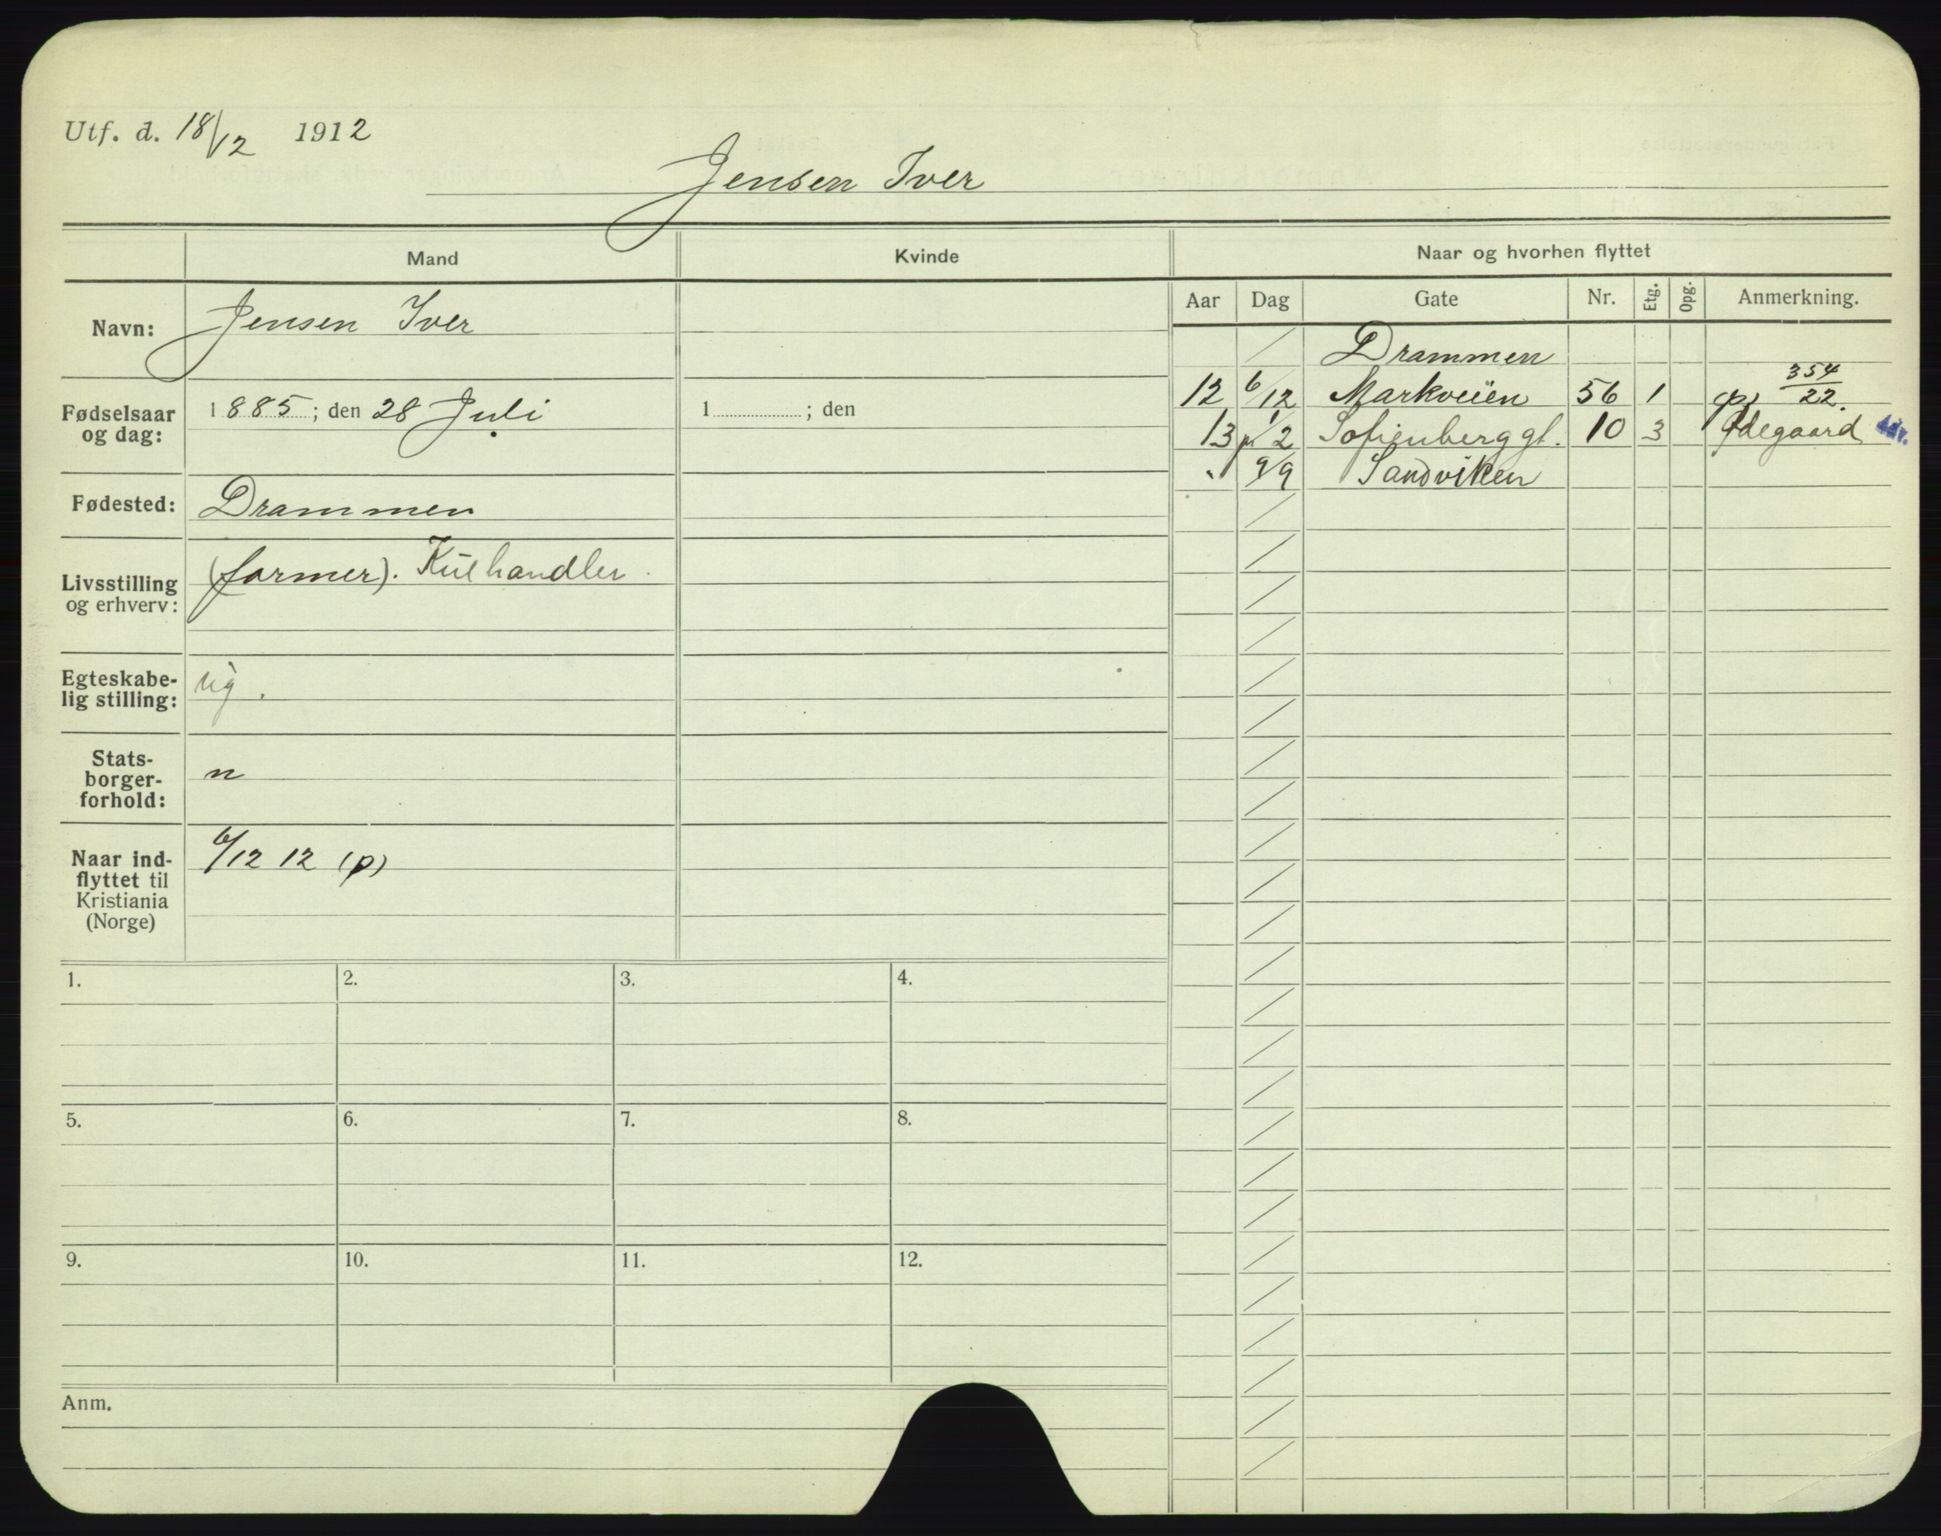 Utf. d. 18/12 1912
Jensen Iver
Mand
Kvinde
Naar og hvorhen flyttet
Aar Dag Gate Nr. Etg. Opg. Anmerkning.
Navn: Jensen Iver
Fødselsaar og dag: 1885; den 28 Juli
1 ; den
Fødested: Drammen
Livsstilling og erhverv: (former). Kulhandler.
Egteskabe-
lig stilling: ug.
Stats-
borger-
forhold: n
Naar ind-
flyttet til
Kristiania
(Norge) 6/12 12 (p)
Drammen
12 6/12 Markveien 56 1 (p) 354/22.
13 1/2 Sofienberggt. 10 3 Ødegaard
" 9/9 Sandviken
1. 2. 3. 4.
5. 6. 7. 8.
9. 10. 11. 12.
Anm.